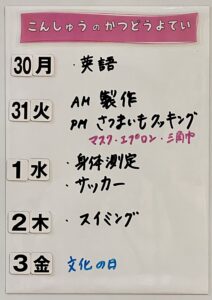 こんしゅうのかつどうよてい
30 月 ・英語
31 火 AM 製作
PM さつまいもクッキング
マスク・エプロン・三角巾
1 水 ・身体測定
・サッカー
2 木 ・スイミング
3 金 文化の日